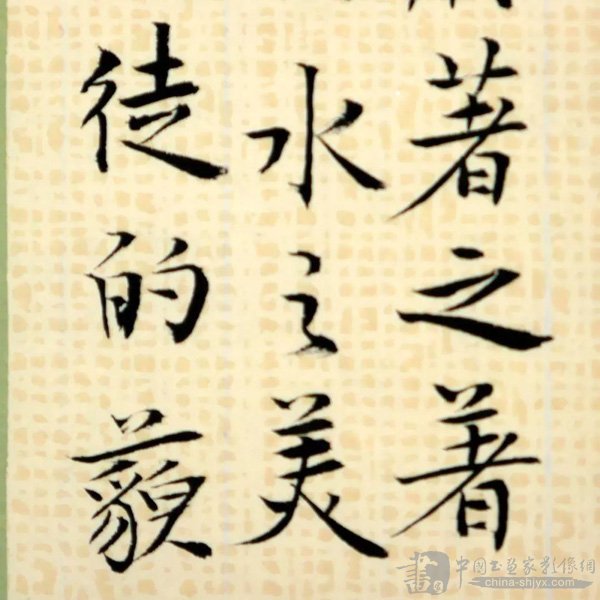 著之著
水之美
徒的藐
書 中國书画家影像網
china-shjyx.com